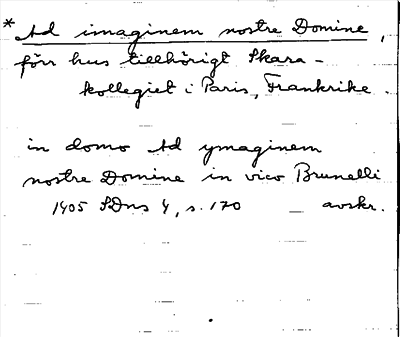 * Ad imaginem nostre Domine,
förr hus tillhörigt Skara-
kollegiet i Paris, Frankrike.
in domo Ad ymaginem
nostre Domine in vico Brunelli
1405 SDns 4, s. 170 avskr.